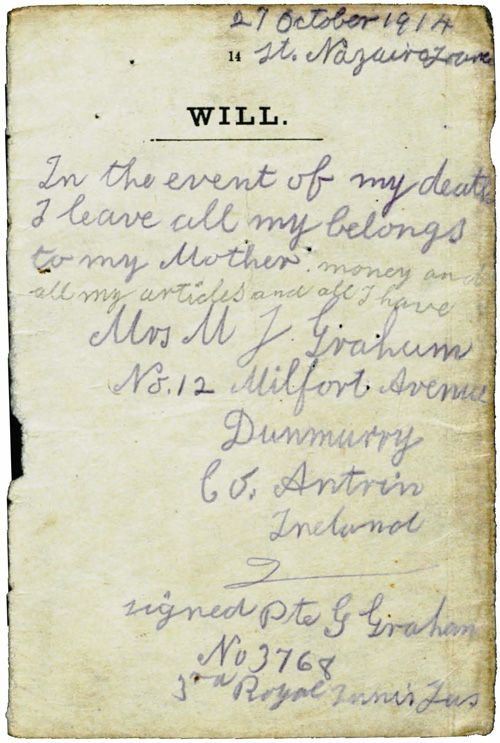 27 October 1914
14 St. Nazaire France
WILL.
In the event of my death
I leave all my belongs
to my Mother. money and
all my articles and all I have
Mrs M J Graham
No. 12 Milfort Avenue
Dunmurry
Co. Antrin
Ireland
signed Pte G Graham
No 3768
3rd Royal Innis Fus